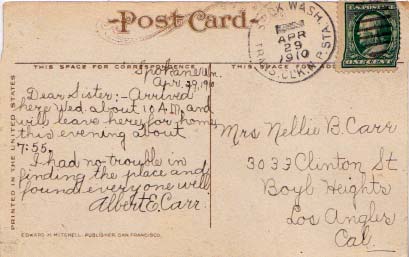 Post Card
SPOK WASH.
APR
29
1910
TRANS. CLK. N.P. STA.
THIS SPACE FOR CORRESPONDENCE
THIS SPACE FOR
PRINTED IN THE UNITED STATES
Spokane Wn.
Apr. 29, 1910
Dear Sister:- Arrived
here Wed. about 10 A.M. and
will leave here for home
this evening about
7:55.
I had no trouble in
finding the place and
found everyone well
Albert E. Carr.
Mrs Nellie B. Carr
3033 Clinton St.
Boyl Heights
Los Angles
Cal.
EDWARD H. MITCHELL - PUBLISHER, SAN FRANCISCO.